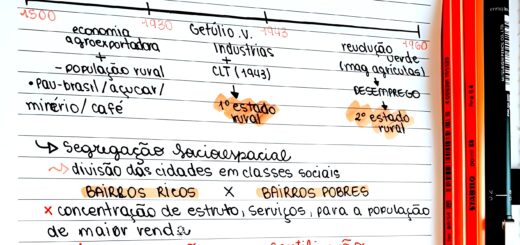 1500 1930 1943 1960
economia Getúlio V. revolução
agroexportadora Industrias verde
+ + (maq. agrícolas)
- população rural CLT (1943) DESEMPREGO
• pau-brasil/açucar/ 1º estado 2º estado
minério/café rural rural
↳ Segregação Socioespacial
divisão das cidades em classes sociais
BAIRROS RICOS X BAIRROS POBRES
x concentração de estruto, serviços, para a população
de maior renda
STABILO